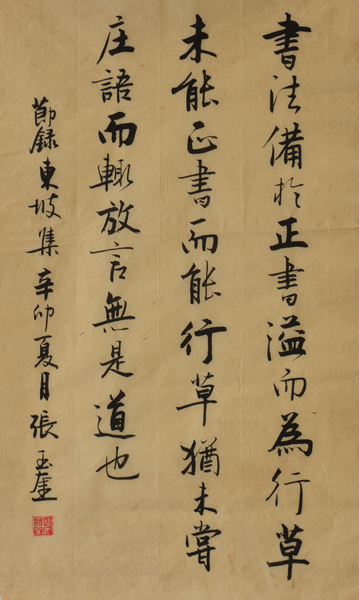 書法備於正書溢而為行草
未能正書而能行草猶未嘗
庄語而輒放言無是道也
節錄東坡集辛卯夏月張玉崖